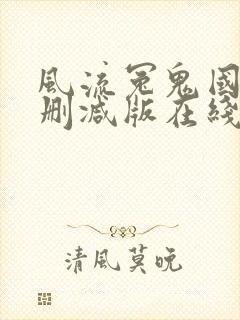 風流冤鬼國
刪减版在綫
清風莫晚